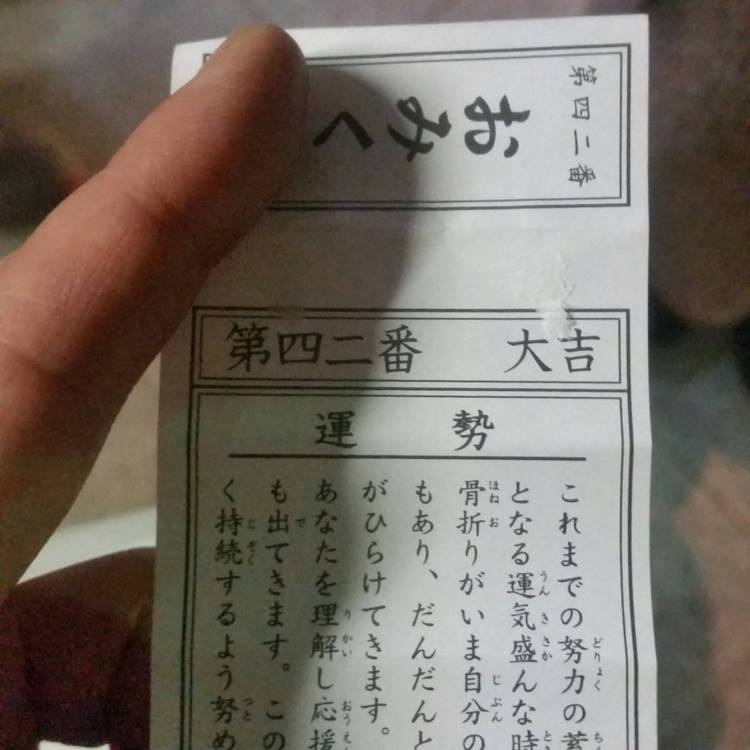 第四二番
おみく
第四二番 大吉
運勢
これまでの努力の
となる運気盛んな時
骨折りがいま自分の
もあり、だんだんと
がひらけてきます。
あなたを理解し応援
も出てきます。この
く持続するよう努め